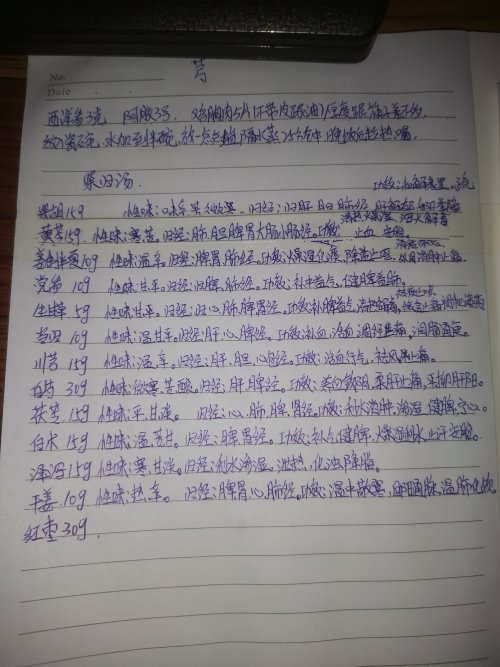 No.
Date
芎
西洋参3克 阿胶3克. 鸡胸肉5片(不带皮跟油)厚度跟筷子差不多
放入瓷碗, 水加至半碗, 放一点点盐, 隔水蒸, 趁热喝.
柴归汤. 功效: 和解表里
柴胡15g 性味: 味辛苦微寒. 归经: 肝胆肺经.
黄芩15g 性味: 寒苦. 归经: 肺胆脾胃大肠小肠经. 功效: 清热燥湿, 泻火解毒 止血 安胎.
姜制半夏10g 性味: 温辛. 归经: 脾胃肺经. 功效: 燥湿化痰, 降逆止呕,
党参 10g 性味: 甘平. 归经: 脾肺经. 功效: 补中益气, 健脾益肺.
生甘草 5g 性味: 甘平. 归经: 归心肺脾胃经. 功效: 补脾益气 清热解毒,
当归 10g 性味: 温甘辛. 归经: 肝心脾经. 功效: 补血, 活血 调经止痛, 润肠通便.
川芎 15g 性味: 温, 辛. 归经: 肝, 胆, 心包经. 功效: 活血行气, 祛风止痛.
白芍 30g 性味: 微寒, 苦酸. 归经: 肝脾经. 功效: 养血敛阴, 柔肝止痛, 平抑肝阳.
茯苓 15g 性味: 平, 甘淡. 归经: 心, 肺, 脾, 肾经. 功效: 利水消肿, 渗湿, 健脾, 宁心.
白术 15g 性味: 温, 苦甘. 归经: 脾胃经. 功效: 补气健脾, 燥湿利水, 止汗安胎.
泽泻15g 性味: 寒, 甘淡. 归经: 利水渗湿, 泄热, 化浊降脂.
干姜 10g 性味: 热, 辛. 归经: 脾胃心肺经. 功效: 温中散寒, 回阳通脉, 温肺化饮.
红枣 30g.